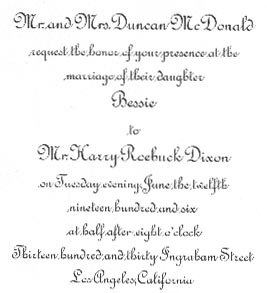 Mr. and Mrs. Duncan McDonald
request the honor of your presence at the
marriage of their daughter
Bessie
to
Mr. Harry Roebuck Dixon
on Tuesday evening, June the twelfth
nineteen hundred and six
at half after eight o'clock
Thirteen hundred and thirty Ingraham Street
Los Angeles, California